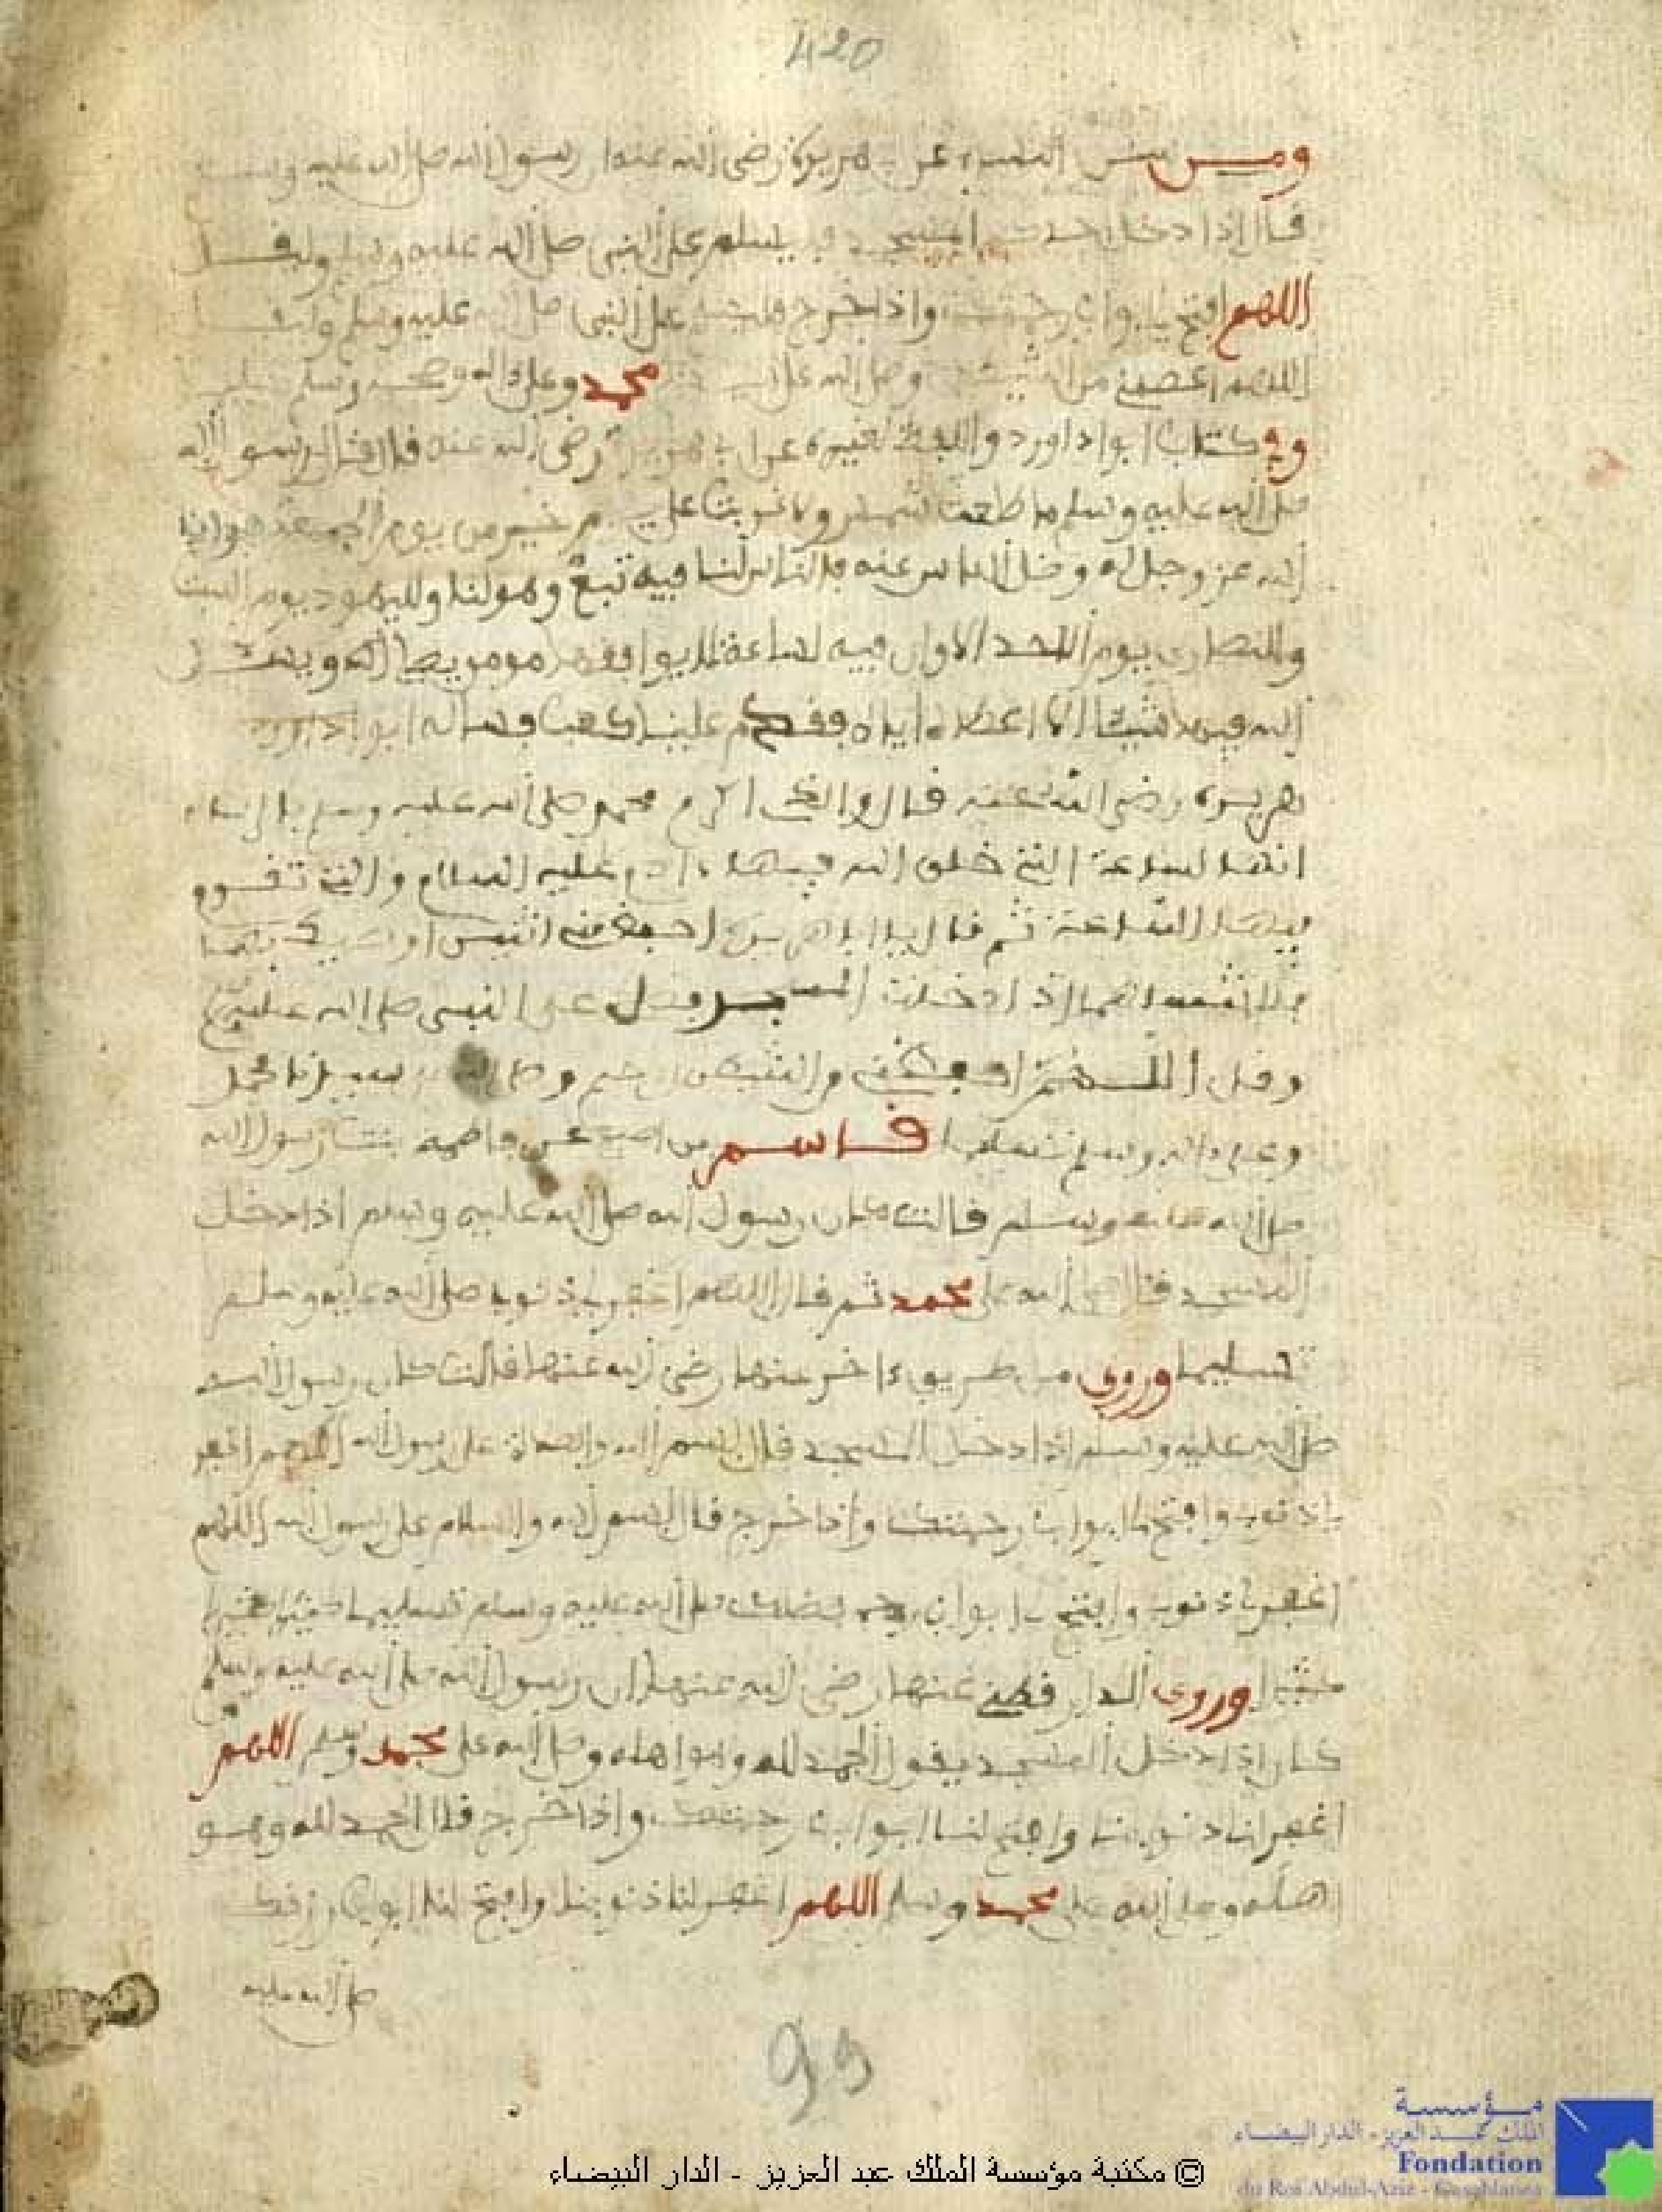 420
ومن سنن النسائي عن هريرة رضي الله عنه ان رسول الله صلى الله عليه وسلم
قال اذا دخل احدكم المسجد فليسلم على النبي صلى الله عليه وسلم وليقل
اللهم افتح لي ابواب رحمتك واذا خرج فليسلم على النبي صلى الله عليه وسلم وليقل
اللهم اعصمني من الشيطان وصلى الله على محمد وعلى ءاله وصحبه وسلم
وفي كتاب ابو داوود واللفظ لغيره عن ابي هريرة رضي الله عنه قال قال رسول الله
صلى الله عليه وسلم ما طلعت شمس ولا غربت على من خير من يوم الجمعة هدانا
الله عز وجل له وضل الناس عنه فالناس لنا فيه تبع وهو لنا ولليهود يوم السبت
وللنصارى يوم الاحد الا وان فيه لساعة لا يوافقها مومن يصلي يسئل
الله فيها شيئا الا اعطاه اياه فقدم علينا كعب فسأله ابو
هريرة رضي الله عنه قال والذي اكرم محمد صلى الله عليه وسلم
انها لساعة التي خلق الله فيها ءادم عليه السلام والتي تقوم
فيها الساعة ثم قال يا ابا هريرة احفظ مني اثنتين اوصيك بهما
اذا دخلت المسجد فصل على النبي صلى الله عليه
وقل اللهم احفظني من الشيطان الرجيم وصلى الله سيدنا محمد
وعلى ءاله وسلم تسليما قاسم بن اصبغ عن فاطمة بنت رسول الله
صلى الله عليه وسلم قالت كان رسول الله صلى الله عليه وسلم اذا دخل
المسجد قال صلى الله على محمد ثم قال اللهم اغفر لي ذنوبي صلى الله عليه وسلم
تسليما وروي من طريق ءاخر عنها رضي الله عنها قالت كان رسول الله
صلى الله عليه وسلم اذا دخل المسجد قال بسم الله والصلاة على رسول الله اللهم اغفر
لي ذنوبي وافتح لي ابواب رحمتك واذا خرج قال بسم الله والسلام على رسول الله اللهم
اغفر لي ذنوبي وافتح لي ابواب فضلك صلى الله عليه وسلم تسليما
كثيرا وروى الدارقطني عنها رضي الله عنها ان رسول الله صلى الله عليه وسلم
كان اذا دخل المسجد يقول الحمد لله وهو اهله وصلى الله على محمد وسلم اللهم
اغفر لنا ذنوبنا وافتح لنا ابواب رحمتك واذا خرج قال الحمد لله وهو
اهله وصلى الله على محمد وسلم اللهم اغفر لنا ذنوبنا وافتح لنا ابواب رزقك
صلى الله عليه
99
مؤسسة
الملك عبد العزيز - الدار البيضاء
Fondation
du Roi Abdul-Aziz - Casablanca
© مكتبة مؤسسة الملك عبد العزيز - الدار البيضاء